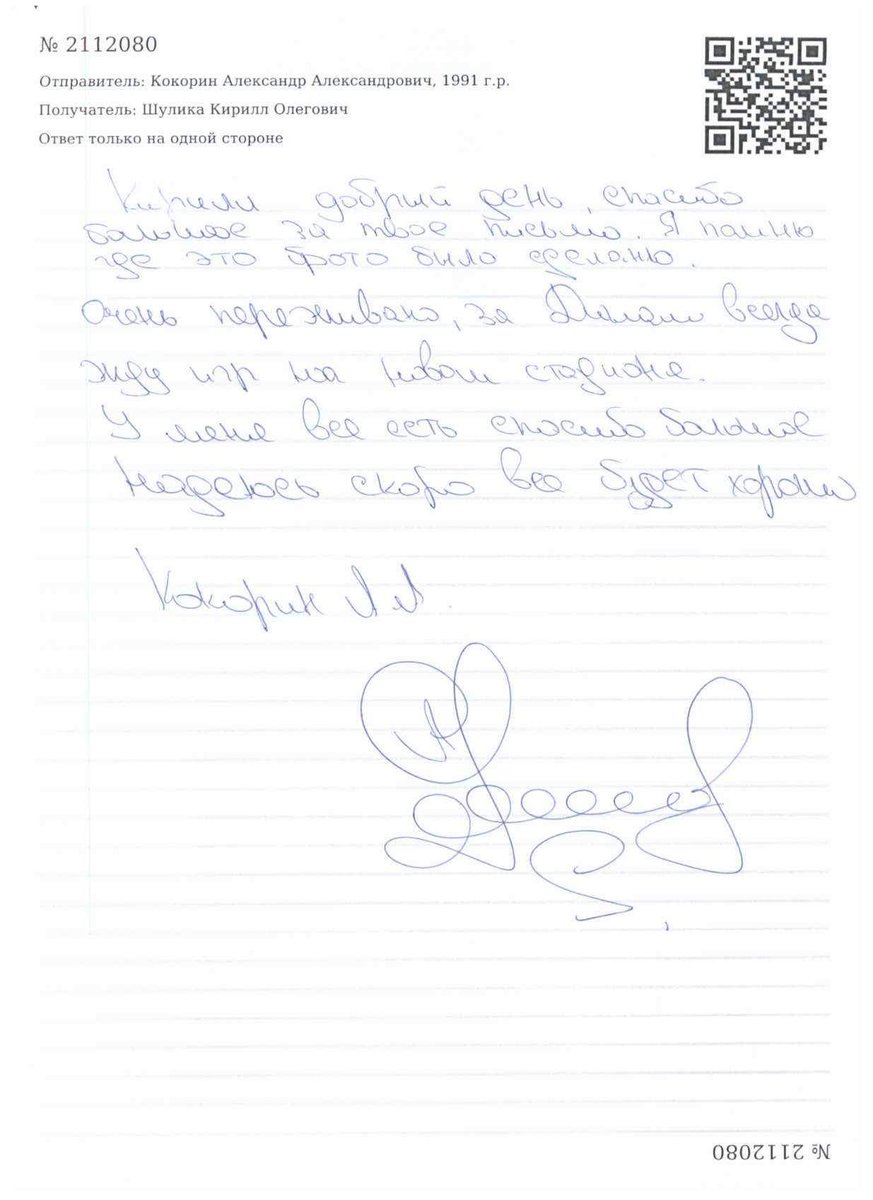 № 2112080
Отправитель: Кокорин Александр Александрович, 1991 г.р.
Получатель: Шулика Кирилл Олегович
Ответ только на одной стороне
Кирилл добрый день, спасибо
большое за твое письмо. Я помню
где это фото было сделано.
Очень переживаю, за Динамо всегда
жду игр на новом стадионе.
У меня все есть спасибо большое
Надеюсь скоро все будет хорошо
Кокорин А А.
№ 2112080